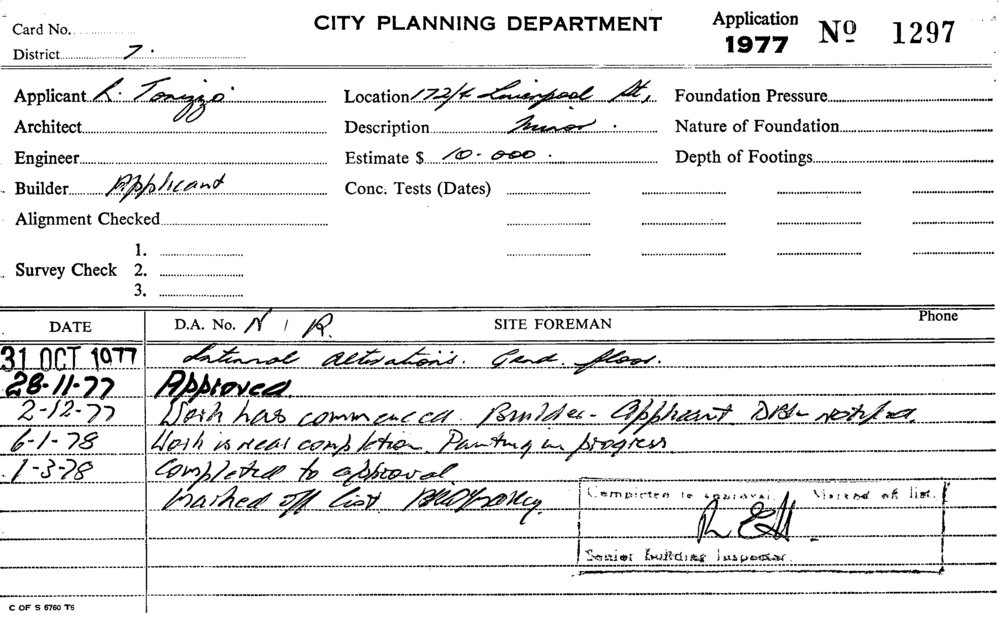 CITY PLANNING DEPARTMENT
Card No.
District 7.
Application
1977 No 1297
Applicant R. Tonizzo
Location 172/4 Liverpool St,
Foundation Pressure
Architect
Description Minor.
Nature of Foundation
Engineer
Estimate $ 10.000.
Depth of Footings
Builder Applicant
Conc. Tests (Dates)
Alignment Checked
Survey Check
1.
2.
3.
DATE D.A. No. N/R. SITE FOREMAN Phone
31 OCT 1977 Internal alterations. Gend. floor.
28-11-77 Approved
2-12-77 Work has commenced. Builder - Applicant notified.
6-1-78 Work is near completion. Painting in progress
1-3-78 Completed to approval
Marked off list.
Completed to approval. Marked off list.
Senior Building Inspector.
C OF S 5760 T6